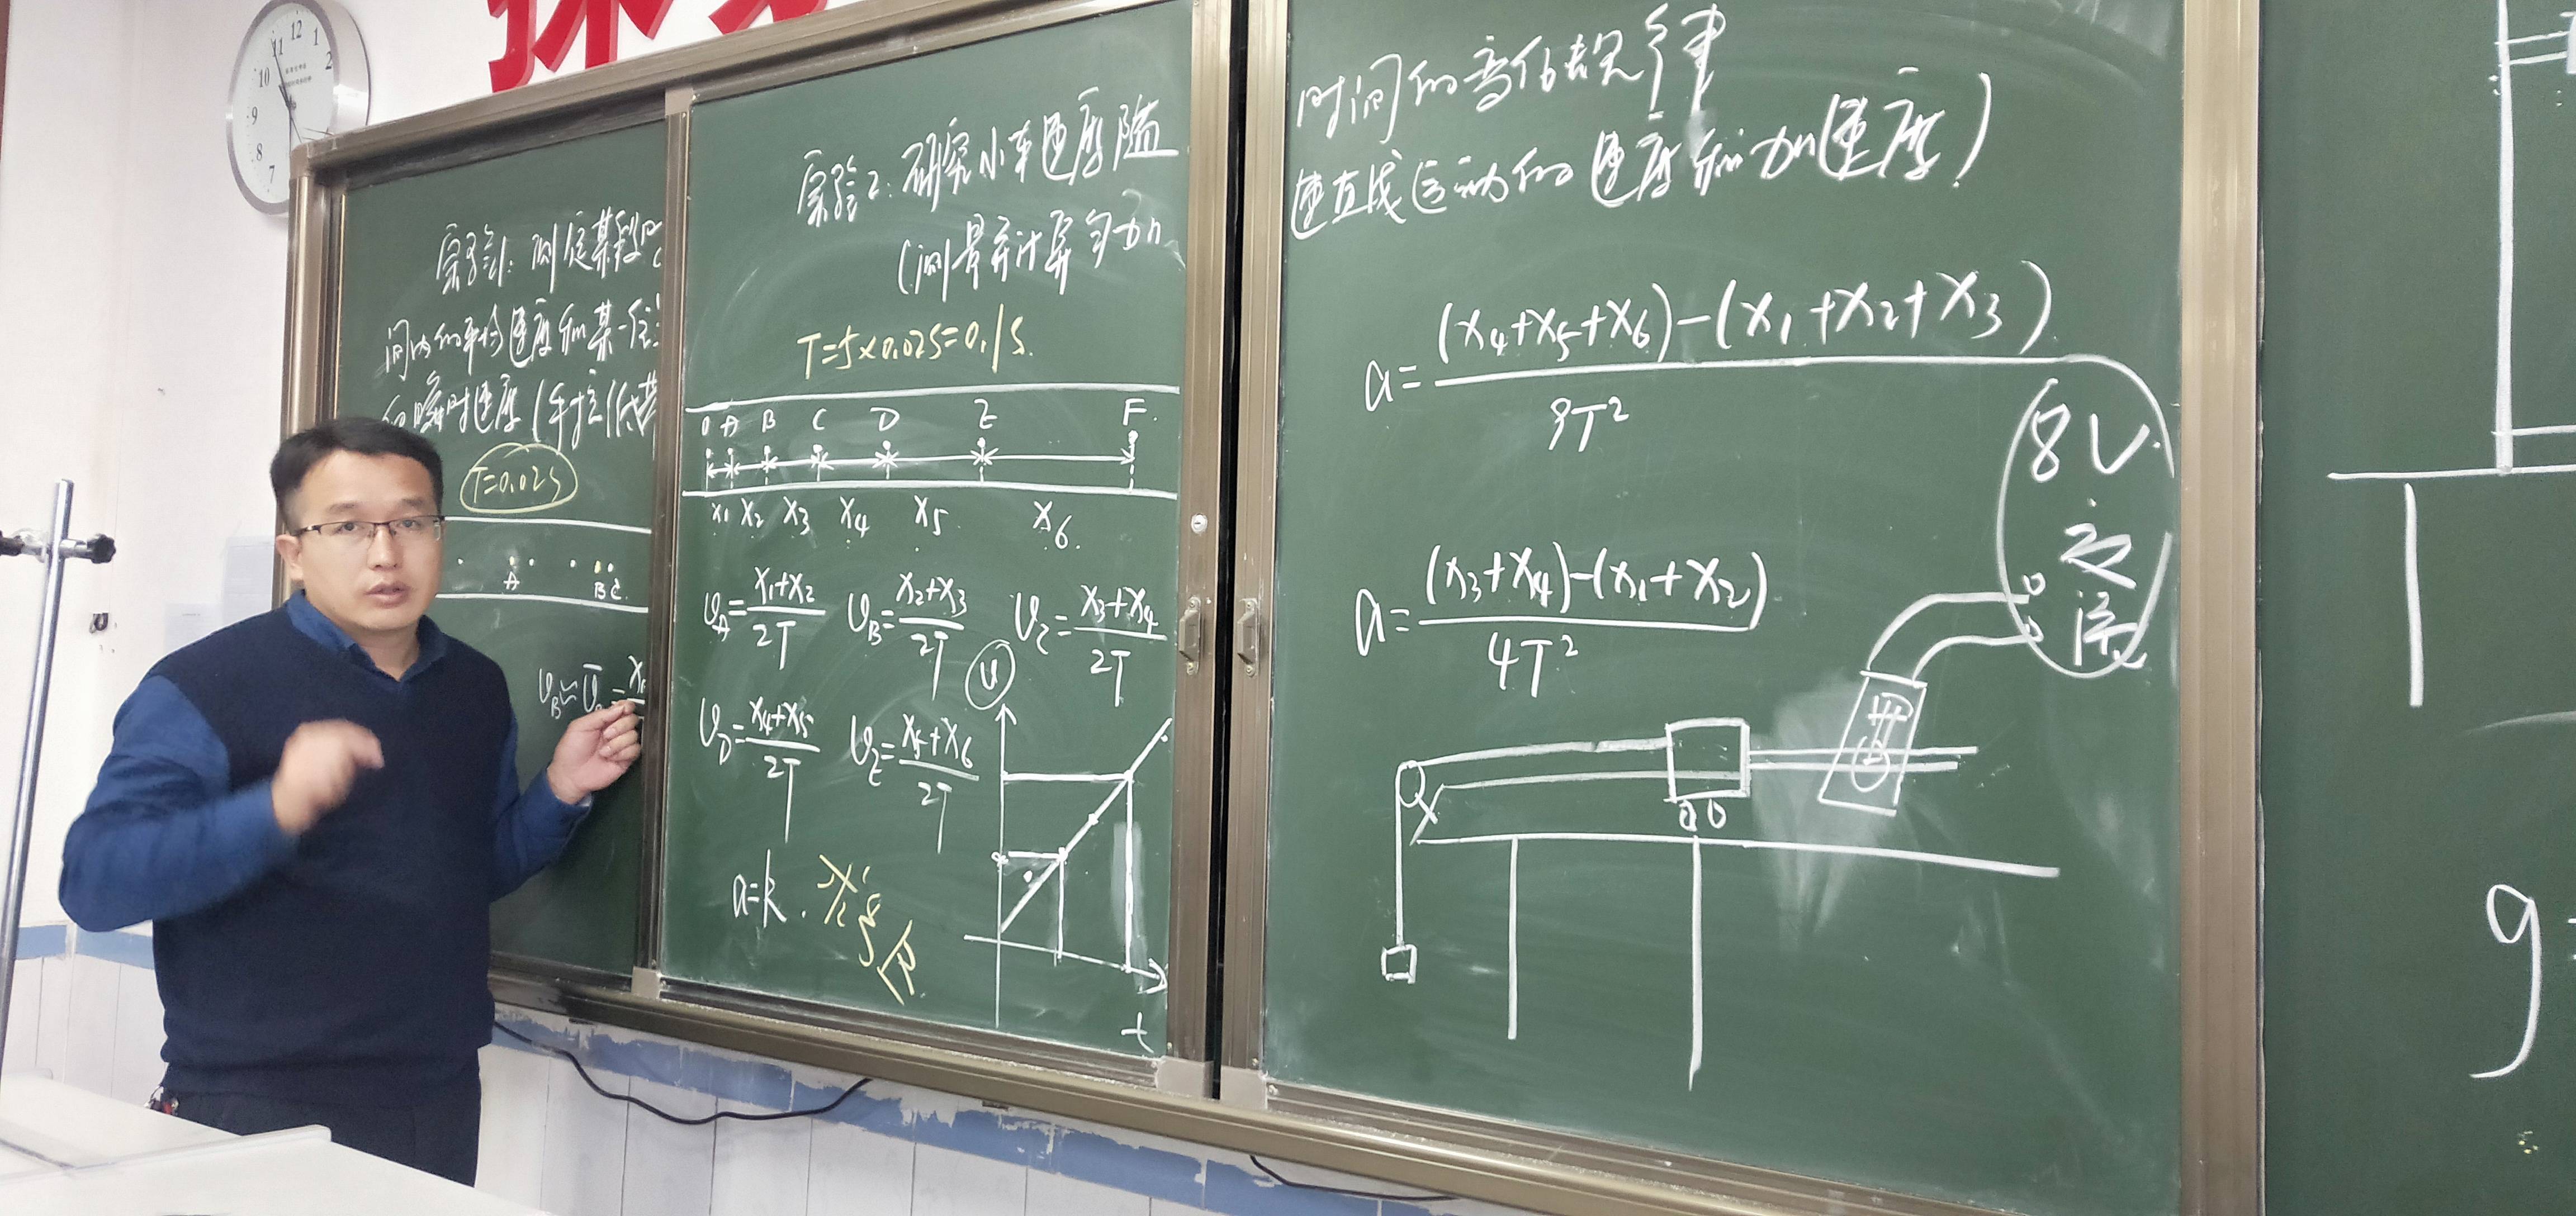 12
1
2
11
10
9
8
7
实验1:测定某段时
间内的平均速度和某一位
的瞬时速度(手拉纸带
T=0.02s
A
B C
实验2:研究小车速度随
(测量并计算匀加
T=5×0.02s=0.1s.
O A B C D E F.
x₁ x₂ x₃ x₄ x₅ x₆
v_A=(x₁+x₂)/2T v_B=(x₂+x₃)/2T v_C=(x₃+x₄)/2T
v_D=(x₄+x₅)/2T v_E=(x₅+x₆)/2T
v
t
a=k.
时间的变化规律
速直线运动的速度和加速度)
a=((x₄+x₅+x₆)-(x₁+x₂+x₃))/9T²
a=((x₃+x₄)-(x₁+x₂))/4T²
8V
交
流
9